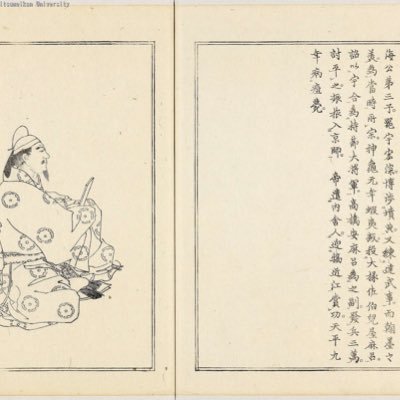 itsumeikan University
海公第三子。器宇宏深。博渉墳典。又練達武事。而翰墨之
美為當時所宗。神龜元年蝦夷叛。殺大掾佐伯兒屋麻呂。
詔以宇合為持節大将軍。高橋安麻呂為之副。發兵三萬。
討平之振旅入京師。帝遣内舍人迎近江賞功。天平九
年病痘薨。